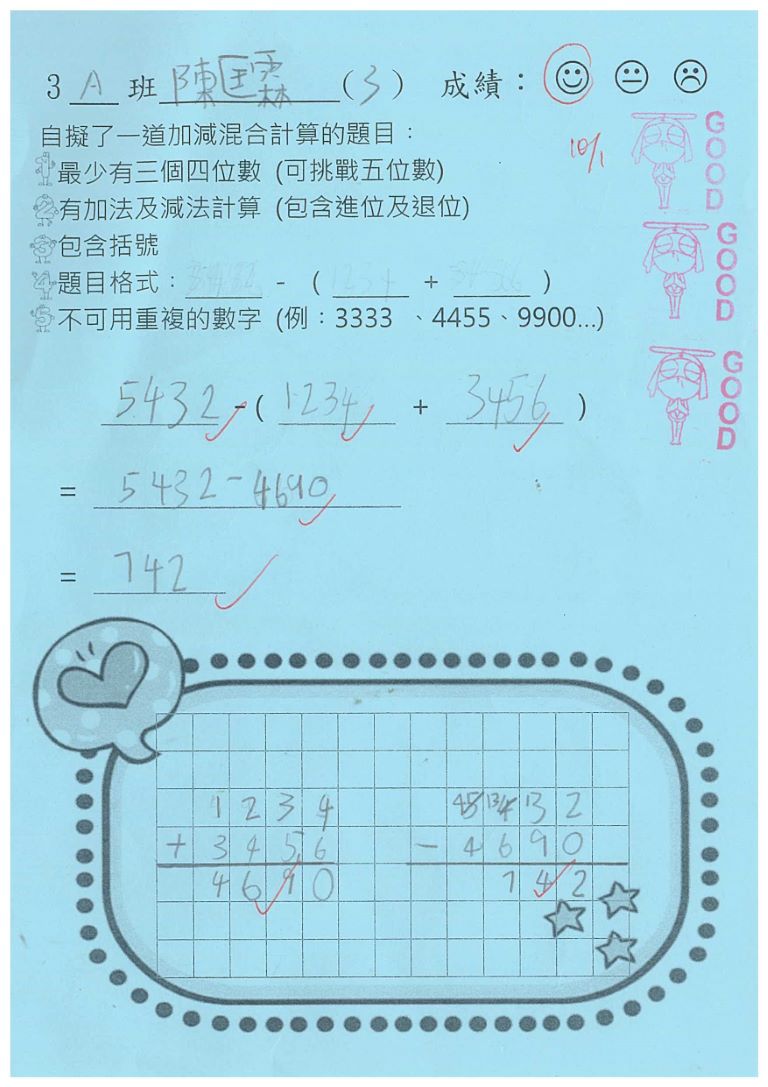 3 A 班 陳匡霖 (3) 成績：
10/1
自擬了一道加減混合計算的題目：
1 最少有三個四位數 (可挑戰五位數)
2 有加法及減法計算 (包含進位及退位)
3 包含括號
4 題目格式：______ - ( 1234 + ______ )
5 不可用重複的數字 (例：3333 、4455、9900...)
GOOD
GOOD
GOOD
5432 - ( 1234 + 3456 )
= 5432 - 4690
= 742
1234
+ 3456
4690
5432
- 4690
742